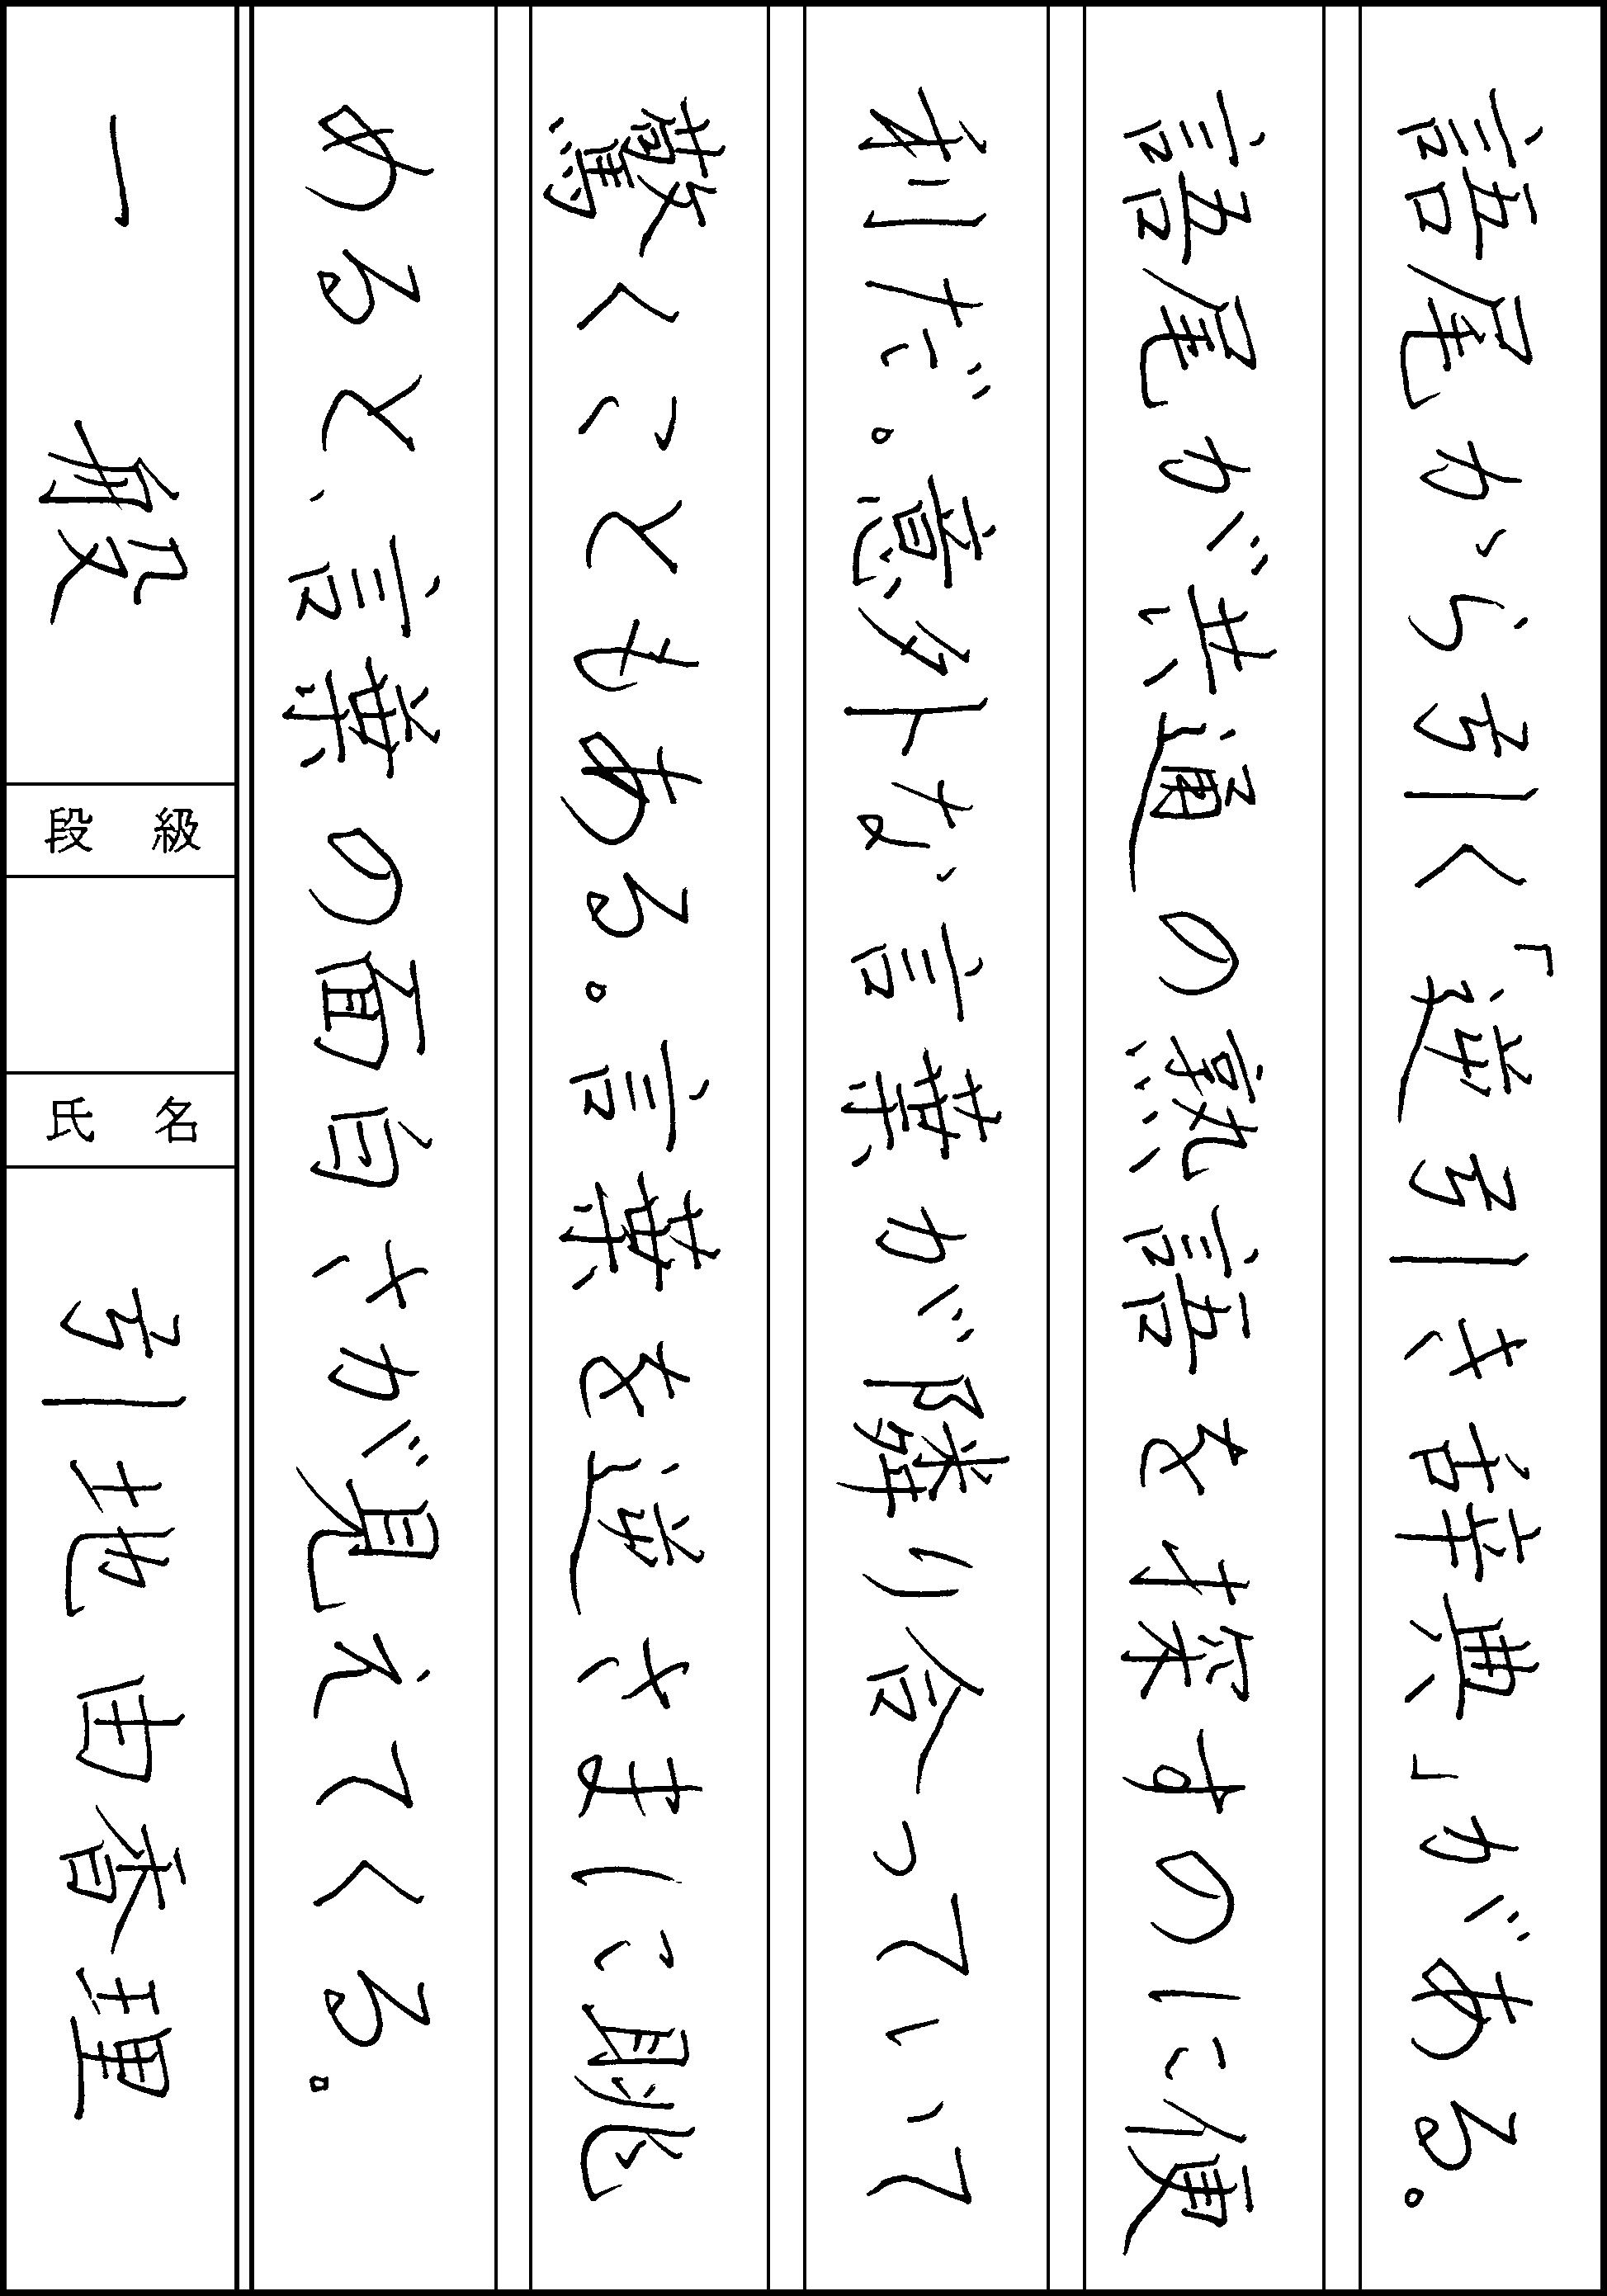 語尾から引く「逆引き辞典」がある。
語尾が共通の熟語を探すのに便
利だ。意外な言葉が隣り合っていて
驚くこともある。言葉を逆さまに眺
めると、言葉の面白さが見えてくる。
一般 段級 氏名 引地由香理